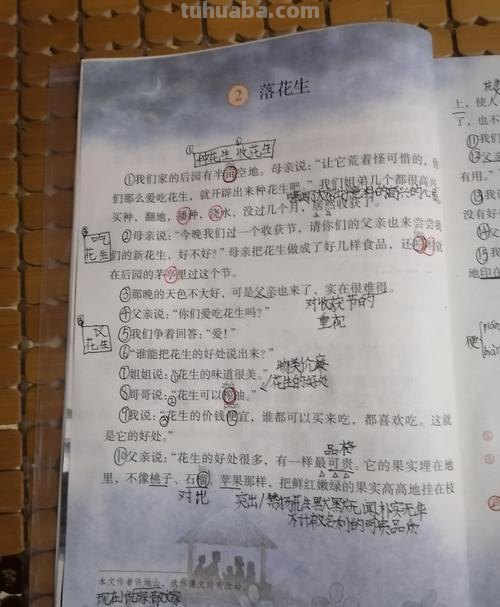 tuhuaba.com
2 落花生
种花生 收花生
①我们家的后园有半亩空地。母亲说:“让它荒着怪可惜的,你
们那么爱吃花生,就开辟出来种花生吧。”我们姐弟几个都很高兴,
买种,翻地,播种,浇水,没过几个月,居然收获了。
吃花生
②母亲说:“今晚我们过一个收获节,请你们的父亲也来尝尝我
们的新花生,好不好?”母亲把花生做成了好几样食品,还吩咐就
在后园的茅亭里过这个节。
③那晚的天色不大好,可是父亲也来了,实在很难得。
对收获节的
重视
④父亲说:“你们爱吃花生吗?”
议花生
⑤我们争着回答:“爱!”
⑥“谁能把花生的好处说出来?”
⑦姐姐说:“花生的味道很美。”
物美价廉
花生的好处
⑧哥哥说:“花生可以榨油。”
⑨我说:“花生的价钱便宜,谁都可以买来吃,都喜欢吃。这就
是它的好处。”
品格
⑩父亲说:“花生的好处很多,有一样最可贵。它的果实埋在地
里,不像桃子、石榴、苹果那样,把鲜红嫩绿的果实高高地挂在枝
对比
突出/赞扬花生默默无闻朴实无华
不计较名利的可贵品质
本文作者许地山,选作课文时有改动。
上,使人
了,也不
有用。”
地印在
使